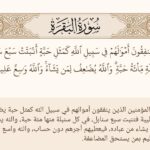 سُورَةُ البَقَرَةِ
يُنفِقُونَ أَمْوَٰلَهُمْ فِى سَبِيلِ ٱللَّهِ كَمَثَلِ حَبَّةٍ أَنۢبَتَتْ سَبْعَ
مِّا۟ئَةُ حَبَّةٍ وَٱللَّهُ يُضَٰعِفُ لِمَن يَشَآءُ وَٱللَّهُ وَٰسِعٌ
المؤمنين الذين ينفقون أموالهم في سبيل الله كمثل حبة
فتنبت سبع سنابل، في كل سنبلة منها مئة حبة، والله
يشاء من عباده، فيعطيهم أجرهم دون حساب، والله واسع
بمن يستحق المضاعفة.